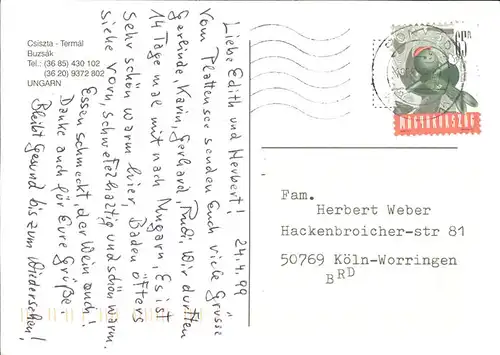 Csiszta - Termál
Buzsák
Tel.: (36 85) 430 102
(36 20) 9372 802
UNGARN
24.4.99
Liebe Edith und Herbert!
Vom Plattensee senden Euch viele Grüsse
Gerlinde, Karin, Gerhard, Rudi, Wir durften
14 Tage mal mit nach Ungarn, Es ist
Sehr schön warm hier, Baden öfters
siehe vorn, schwefelhaltig und schön warm.
Essen schmeckt, der Wein auch!
Danke auch für Eure Grüße.
Bleibt gesund bis zum Wiedersehen!
65Ft
MAGYARORSZÁG
Fam.
Herbert Weber
Hackenbroicher-str 81
50769 Köln-Worringen
BRD